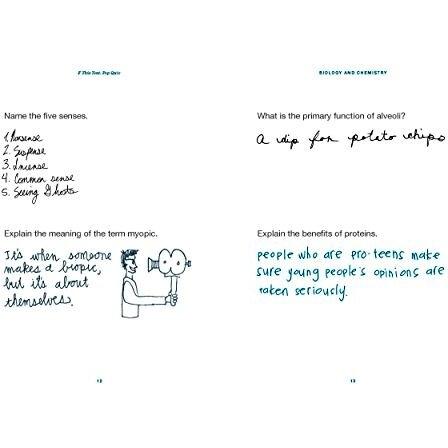 F This Test, Pop Quiz
Name the five senses.
1. Nonsense
2. Suspense
3. Incense
4. Common sense
5. Seeing Ghosts
Explain the meaning of the term myopic.
It's when someone
makes a biopic,
but it's about
themselves.
12
BIOLOGY AND CHEMISTRY
What is the primary function of alveoli?
a dip for potato chips
Explain the benefits of proteins.
people who are pro-teens make
sure young people's opinions are
taken seriously.
13